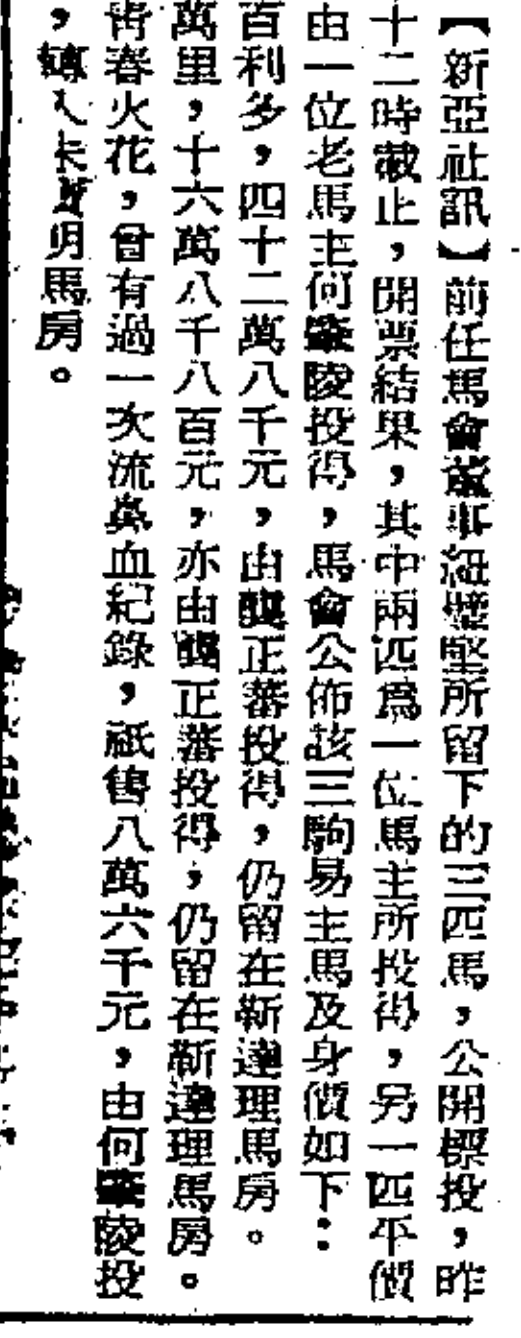 【新亞社訊】前任馬會董事紐璧堅所留下的三匹馬，公開標投，昨
十二時截止，開票結果，其中兩匹爲一位馬主所投得，另一匹平價
由一位老馬主何肇陵投得，馬會公佈該三駒易主馬及身價如下：
百利多，四十二萬八千元，由龔正蕃投得，仍留在靳達理馬房。
萬里，十六萬八千八百元，亦由龔正蕃投得，仍留在靳達理馬房。
靑春火花，曾有過一次流鼻血紀錄，祇售八萬六千元，由何肇陵投
，轉入朱寶明馬房。